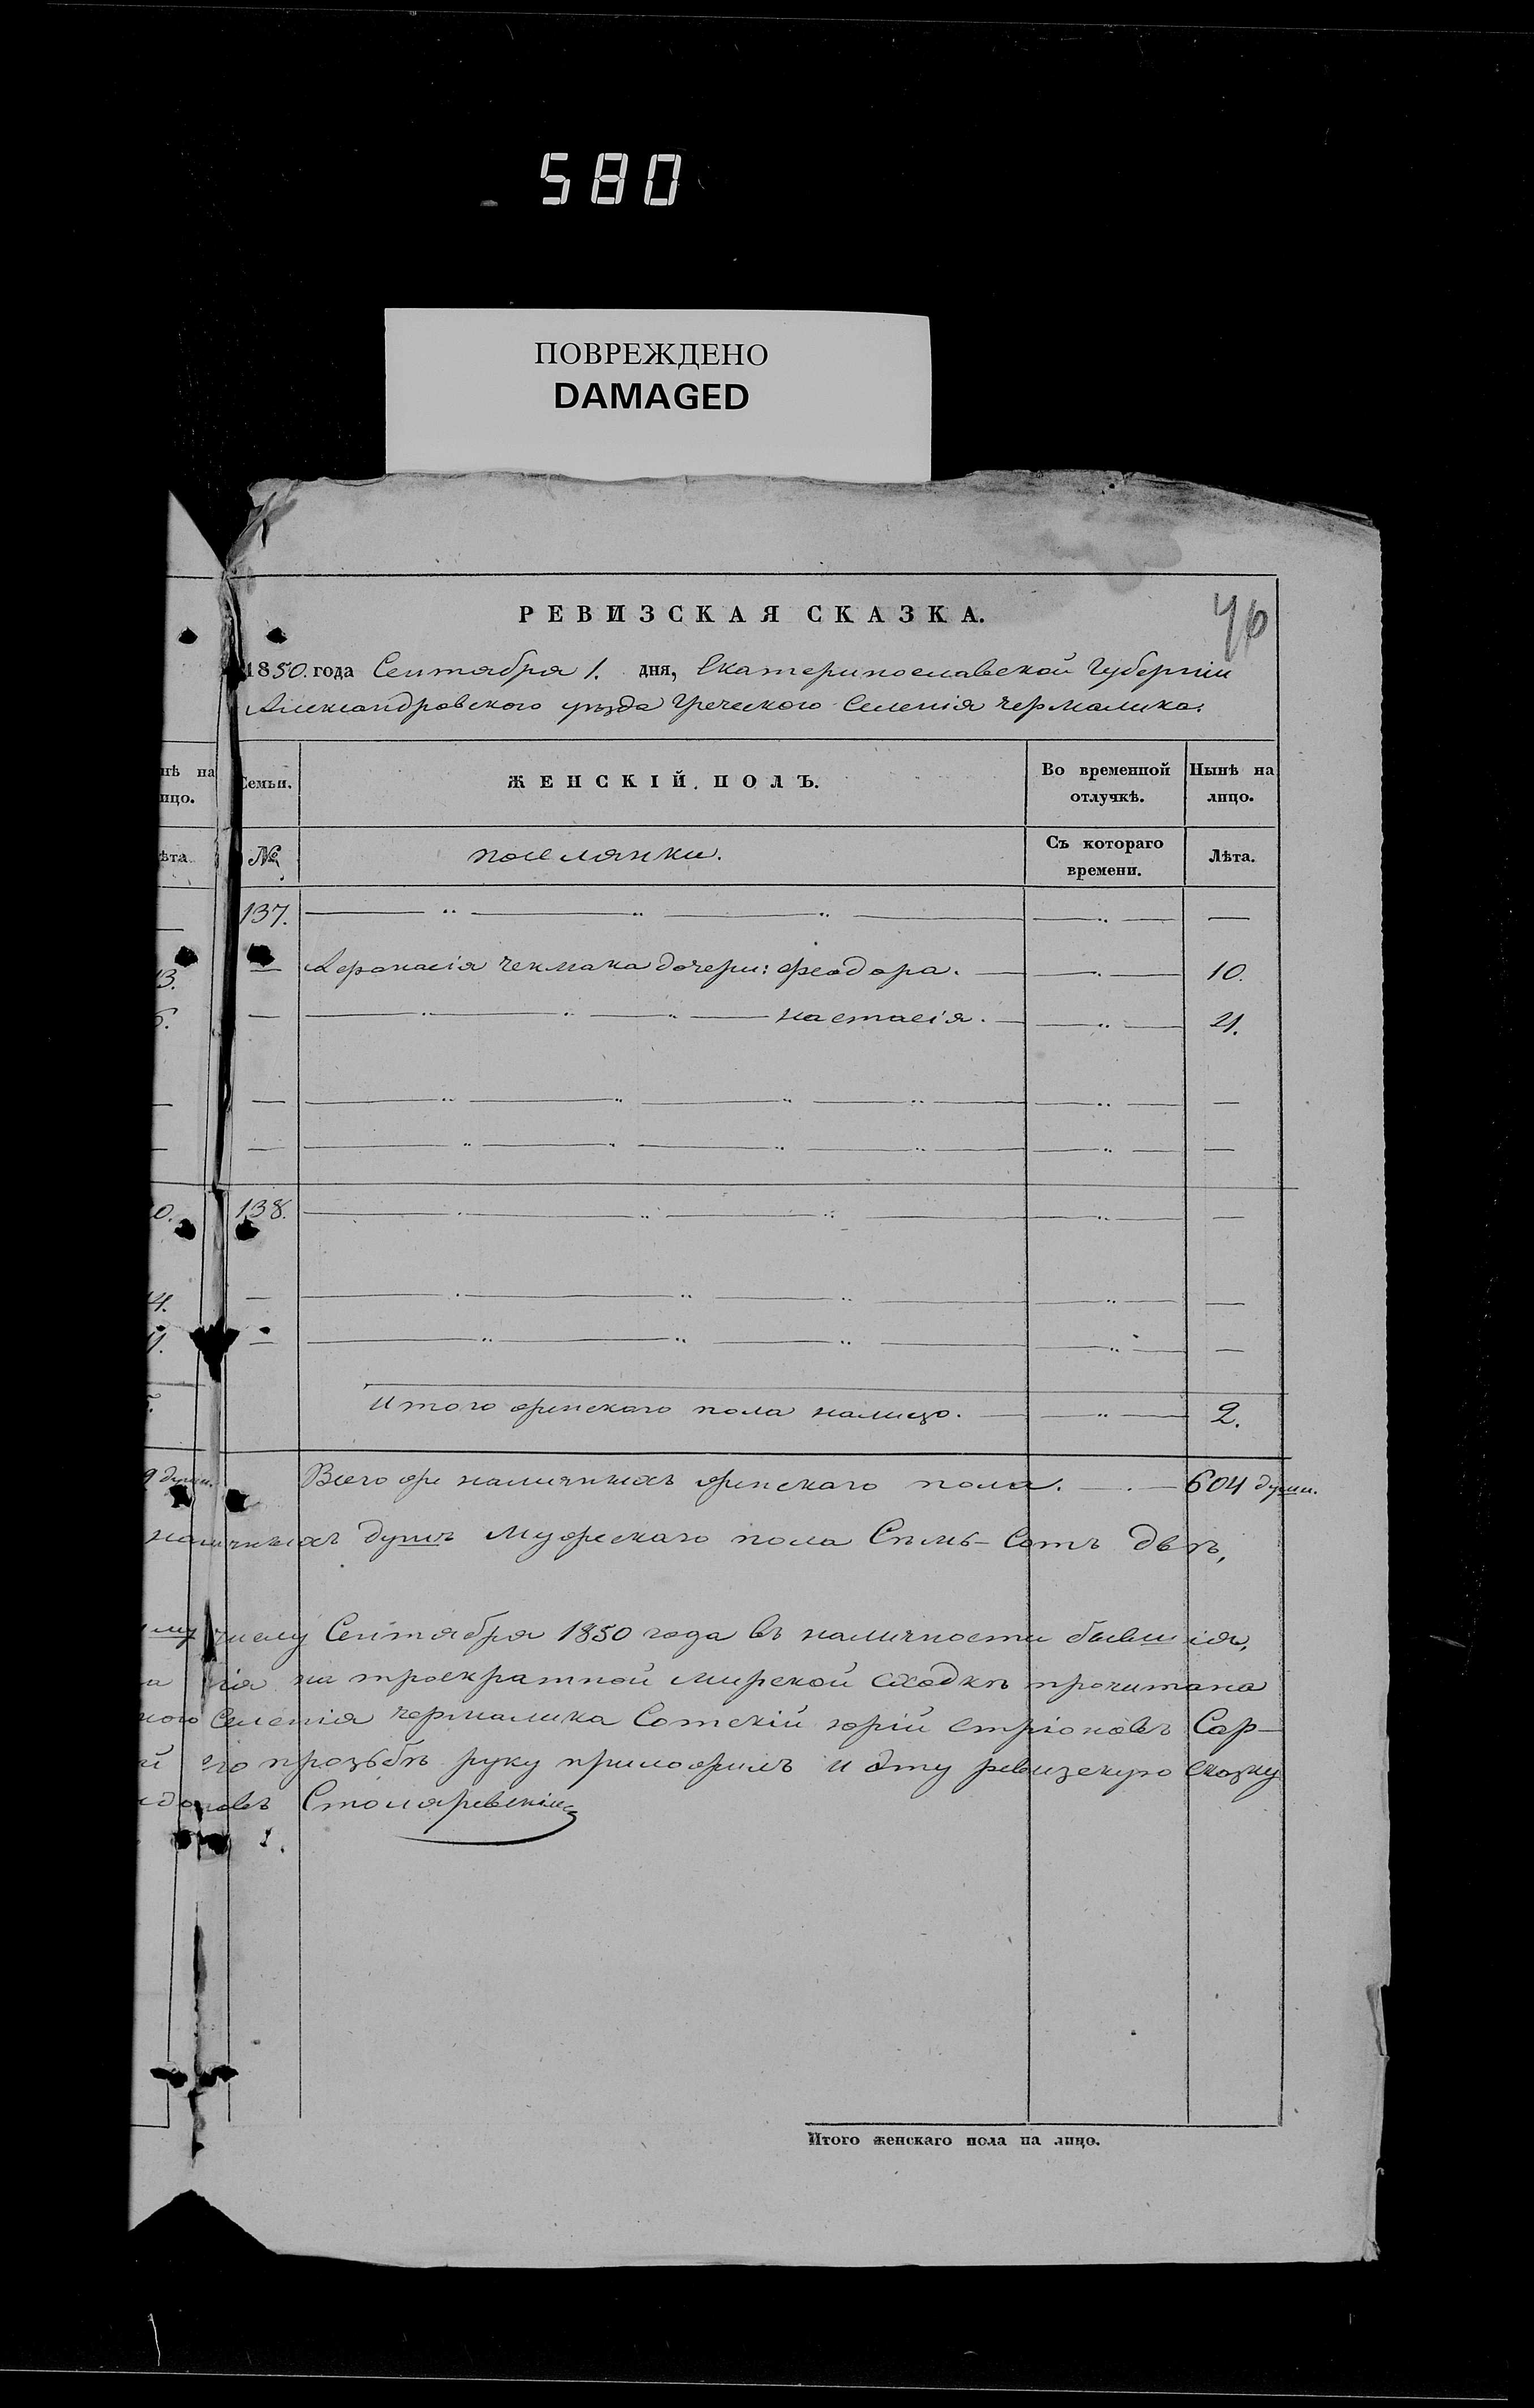 580
ПОВРЕЖДЕНО
DAMAGED
РЕВИЗСКАЯ СКАЗКА.
1850. года Сентября 1. дня, Екатеринославской Губерніи
Александровского уѣзда Греческого Селенія Чермалика.
нѣ на
ицо.
Семьи.
ЖЕНСКІЙ ПОЛЪ.
Во временной
отлучкѣ.
Нынѣ на
лицо.
ѣта
№
поселянки.
Съ котораго
времени.
Лѣта.
137.
3. — Афонасія Чекмака дочери: Феодора. — 10.
— настасія. — 21.
0. 138.
4.
Итого женскаго пола налицо. — 2.
душ. Всего же наличныхъ женскаго пола. — 604 души.
наличныхъ душъ Мужескаго пола Семь-Сотъ двѣ,
му числу Сентября 1850 года въ наличности бывшія,
а сія на троекратной мирской сходкѣ прочитана
кого Селенія Чермалика Сотскій Юрій Стріоновъ Сар-
й его прозьбѣ руку приложилъ и эту ревизскую сказку
Столяревскій
Итого женскаго пола на лицо.